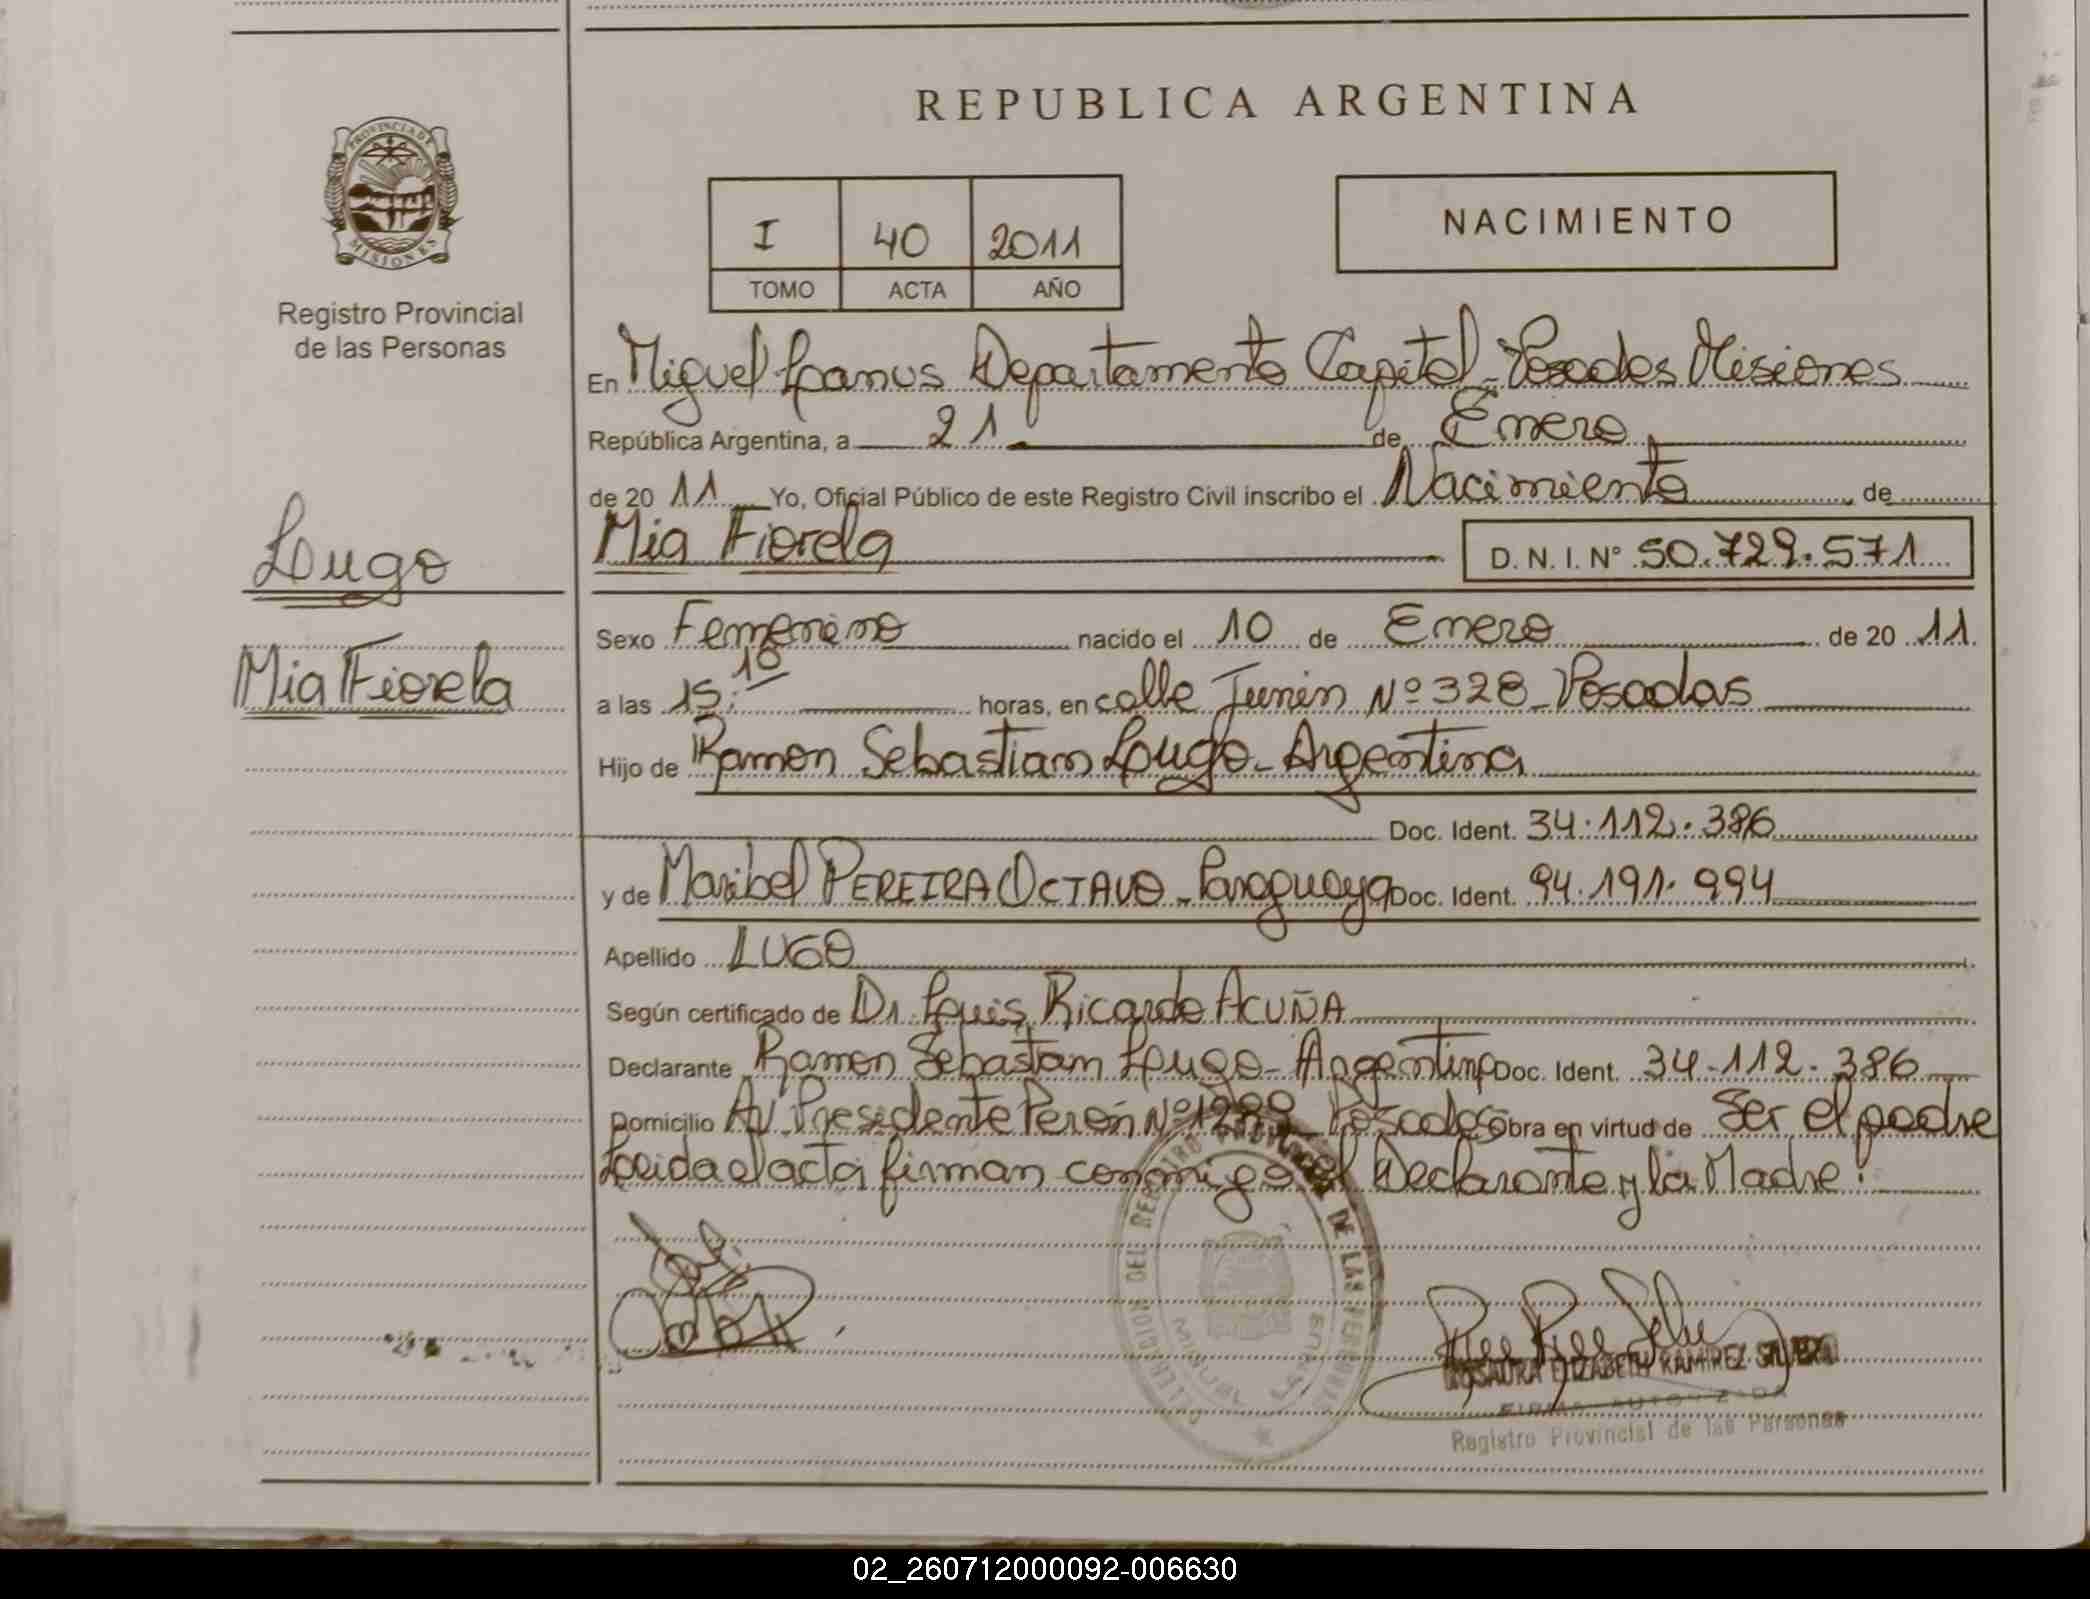 REPUBLICA ARGENTINA
PROVINCIA DE
MISIONES
Registro Provincial
de las Personas
I 40 2011
TOMO ACTA AÑO
NACIMIENTO
En Miguel Lanus Departamento Capital - Posadas Misiones
República Argentina, a 21 de Enero
de 20 11 Yo, Oficial Público de este Registro Civil inscribo el Nacimiento de
Lugo
Mia Fiorela
Mia Fiorela D. N. I. N° 50.729.571
Sexo Femenino nacido el 10 de Enero de 20 11
a las 15:10 horas, en calle Junin Nº 328 - Posadas
Hijo de Ramon Sebastian Lugo - Argentina
Doc. Ident. 34.112.386
y de Maribel PEREIRA OCTAVO - Paraguaya Doc. Ident. 94.191.994
Apellido LUGO
Según certificado de Dr. Luis Ricardo ACUÑA
Declarante Ramon Sebastian Lugo - Argentina Doc. Ident. 34.112.386
Domicilio Av. Presidente Perón Nº 1289 - Posadas Obra en virtud de Ser el padre
Leida el acta firman conmigo el Declarante y la Madre.
DELEGACION DEL REGISTRO PROVINCIAL DE LAS PERSONAS
MIGUEL LANUS
ROSAURA ELIZABETH RAMIREZ SILVERA
FIRMA AUTORIZADA
Registro Provincial de las Personas
02_260712000092-006630